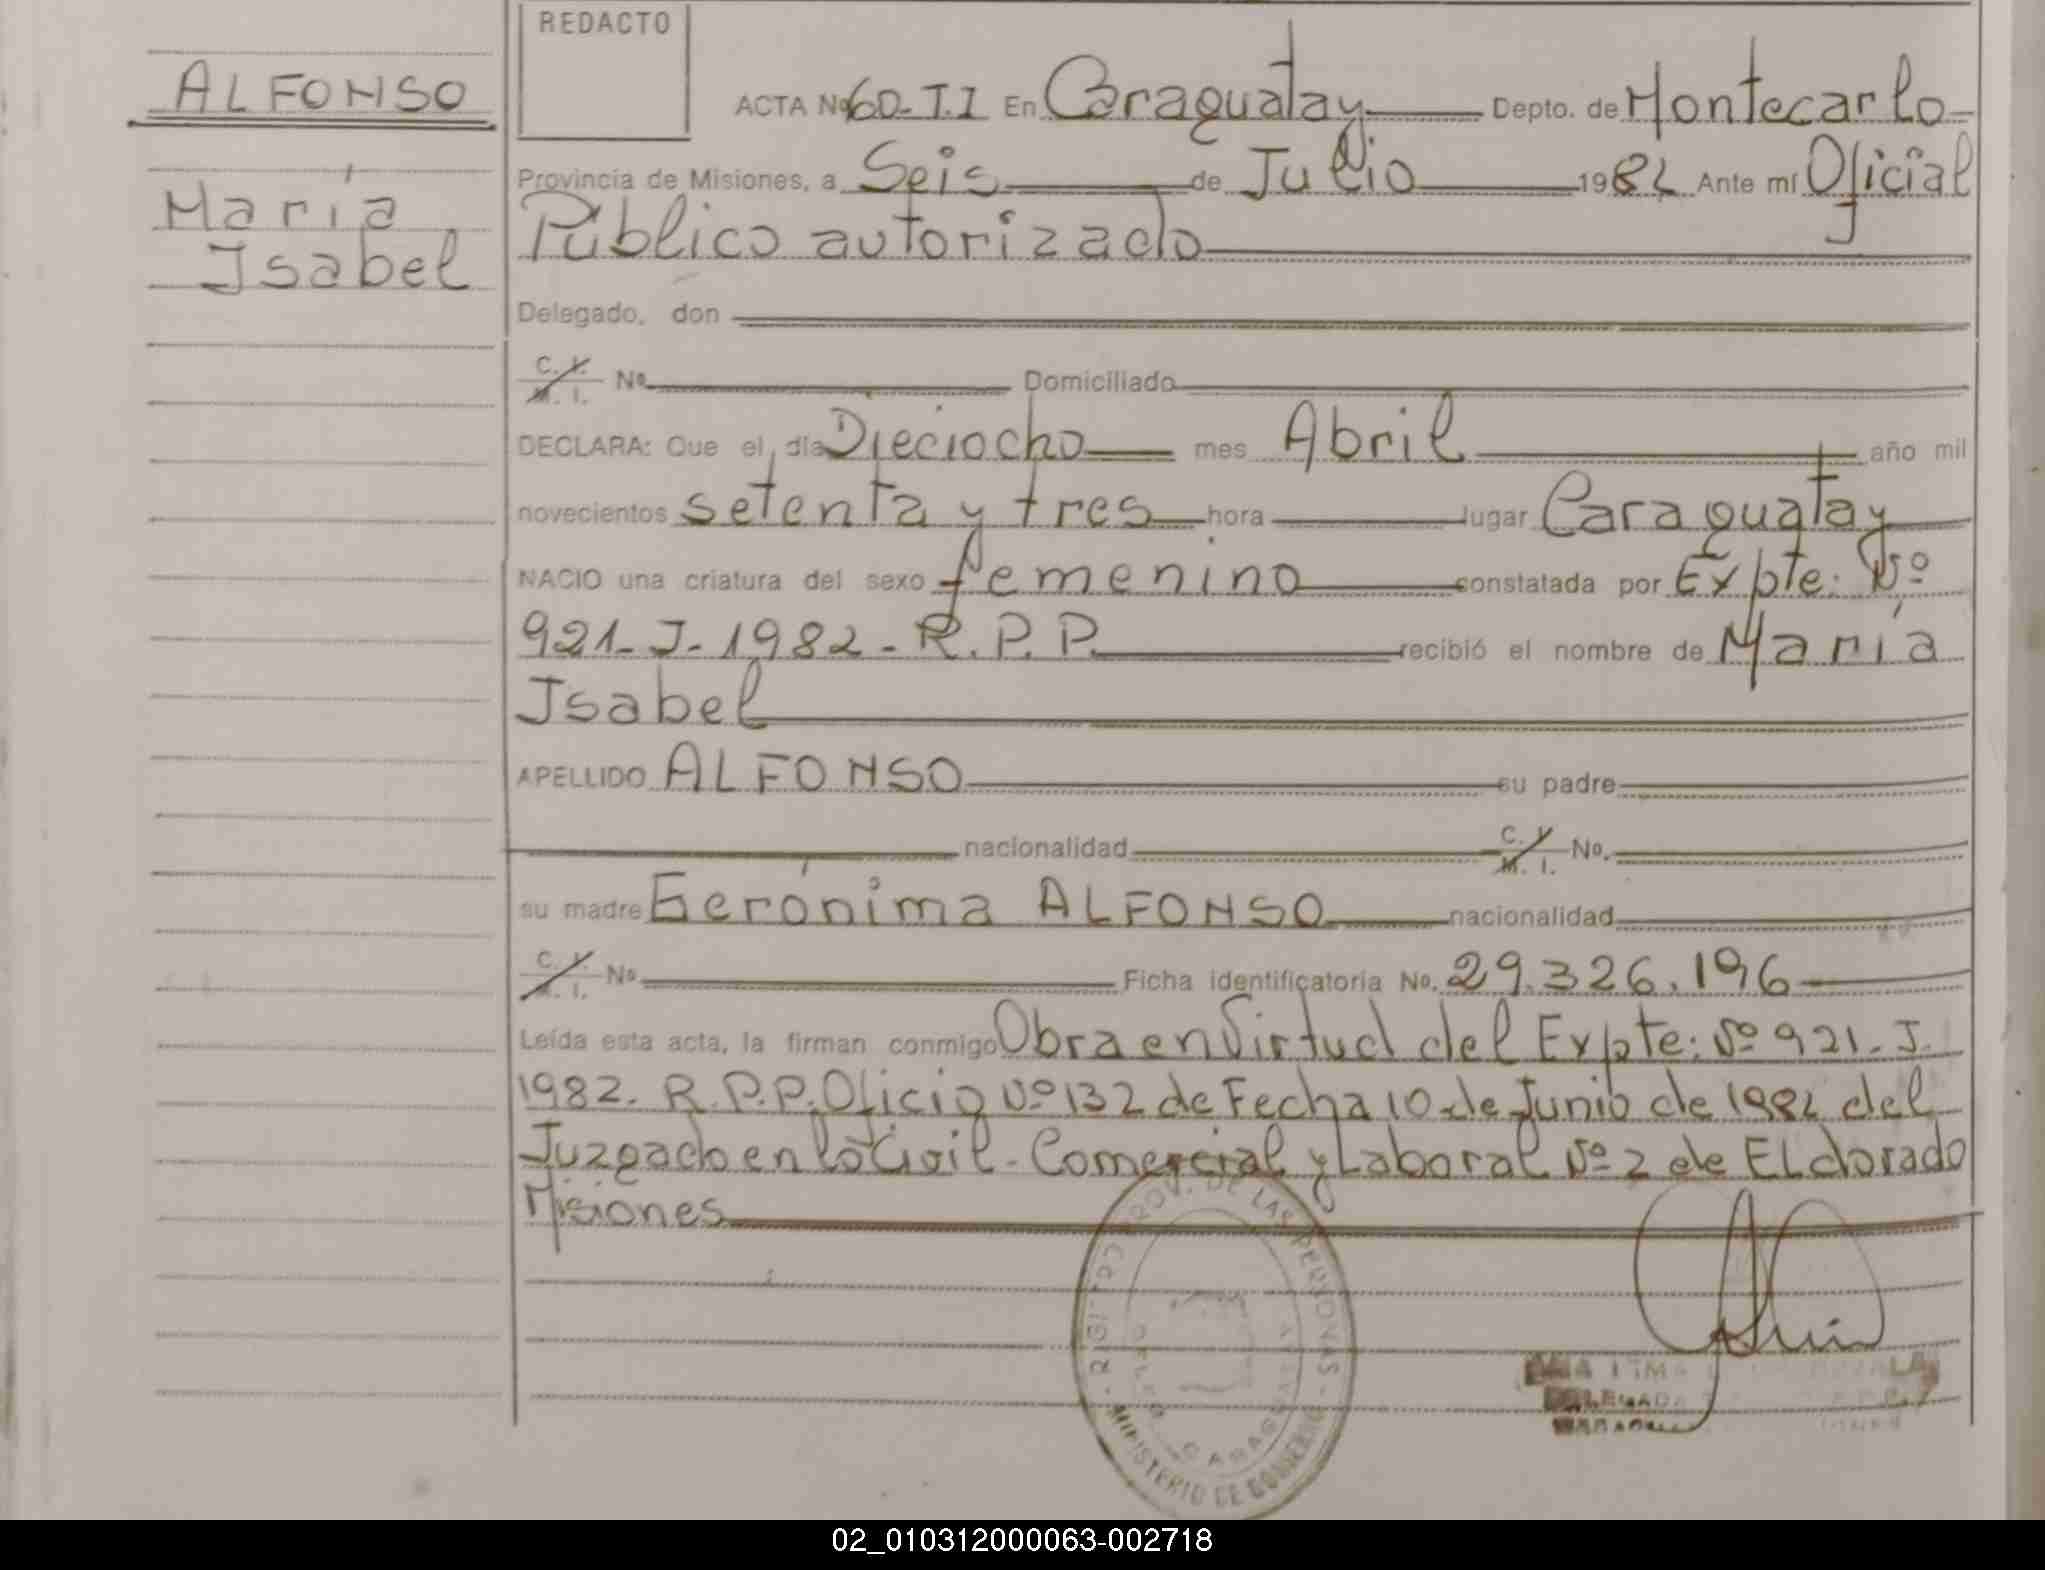 REDACTO
ALFONSO
María
Isabel
ACTA Nº 60-T.I En Caraguatay Depto. de Montecarlo
Provincia de Misiones, a Seis de Julio 1982 Ante mí Oficial
Público autorizado
Delegado, don
C. I. M. I. Nº Domiciliado
DECLARA: Que el día Dieciocho mes Abril año mil
novecientos setenta y tres hora lugar Caraguatay
NACIO una criatura del sexo femenino constatada por Expte: Nº
921-J-1982- R.P.P. recibió el nombre de María
Isabel
APELLIDO ALFONSO su padre
nacionalidad C. I. M. I. No.
su madre Gerónima ALFONSO nacionalidad
C. I. M. I. Nº Ficha identificatoria No. 29.326.196
Leída esta acta, la firman conmigo Obra en Virtud del Expte: Nº 921-J.
1982. R.P.P. Oficio Nº 132 de Fecha 10 de Junio de 1982 del
Juzgado en lo Civil- Comercial y Laboral Nº 2 de Eldorado
Misiones
PROV. DE LAS PERSONAS
MINISTERIO DE GOBIERNO
DELEGADA
02_010312000063-002718